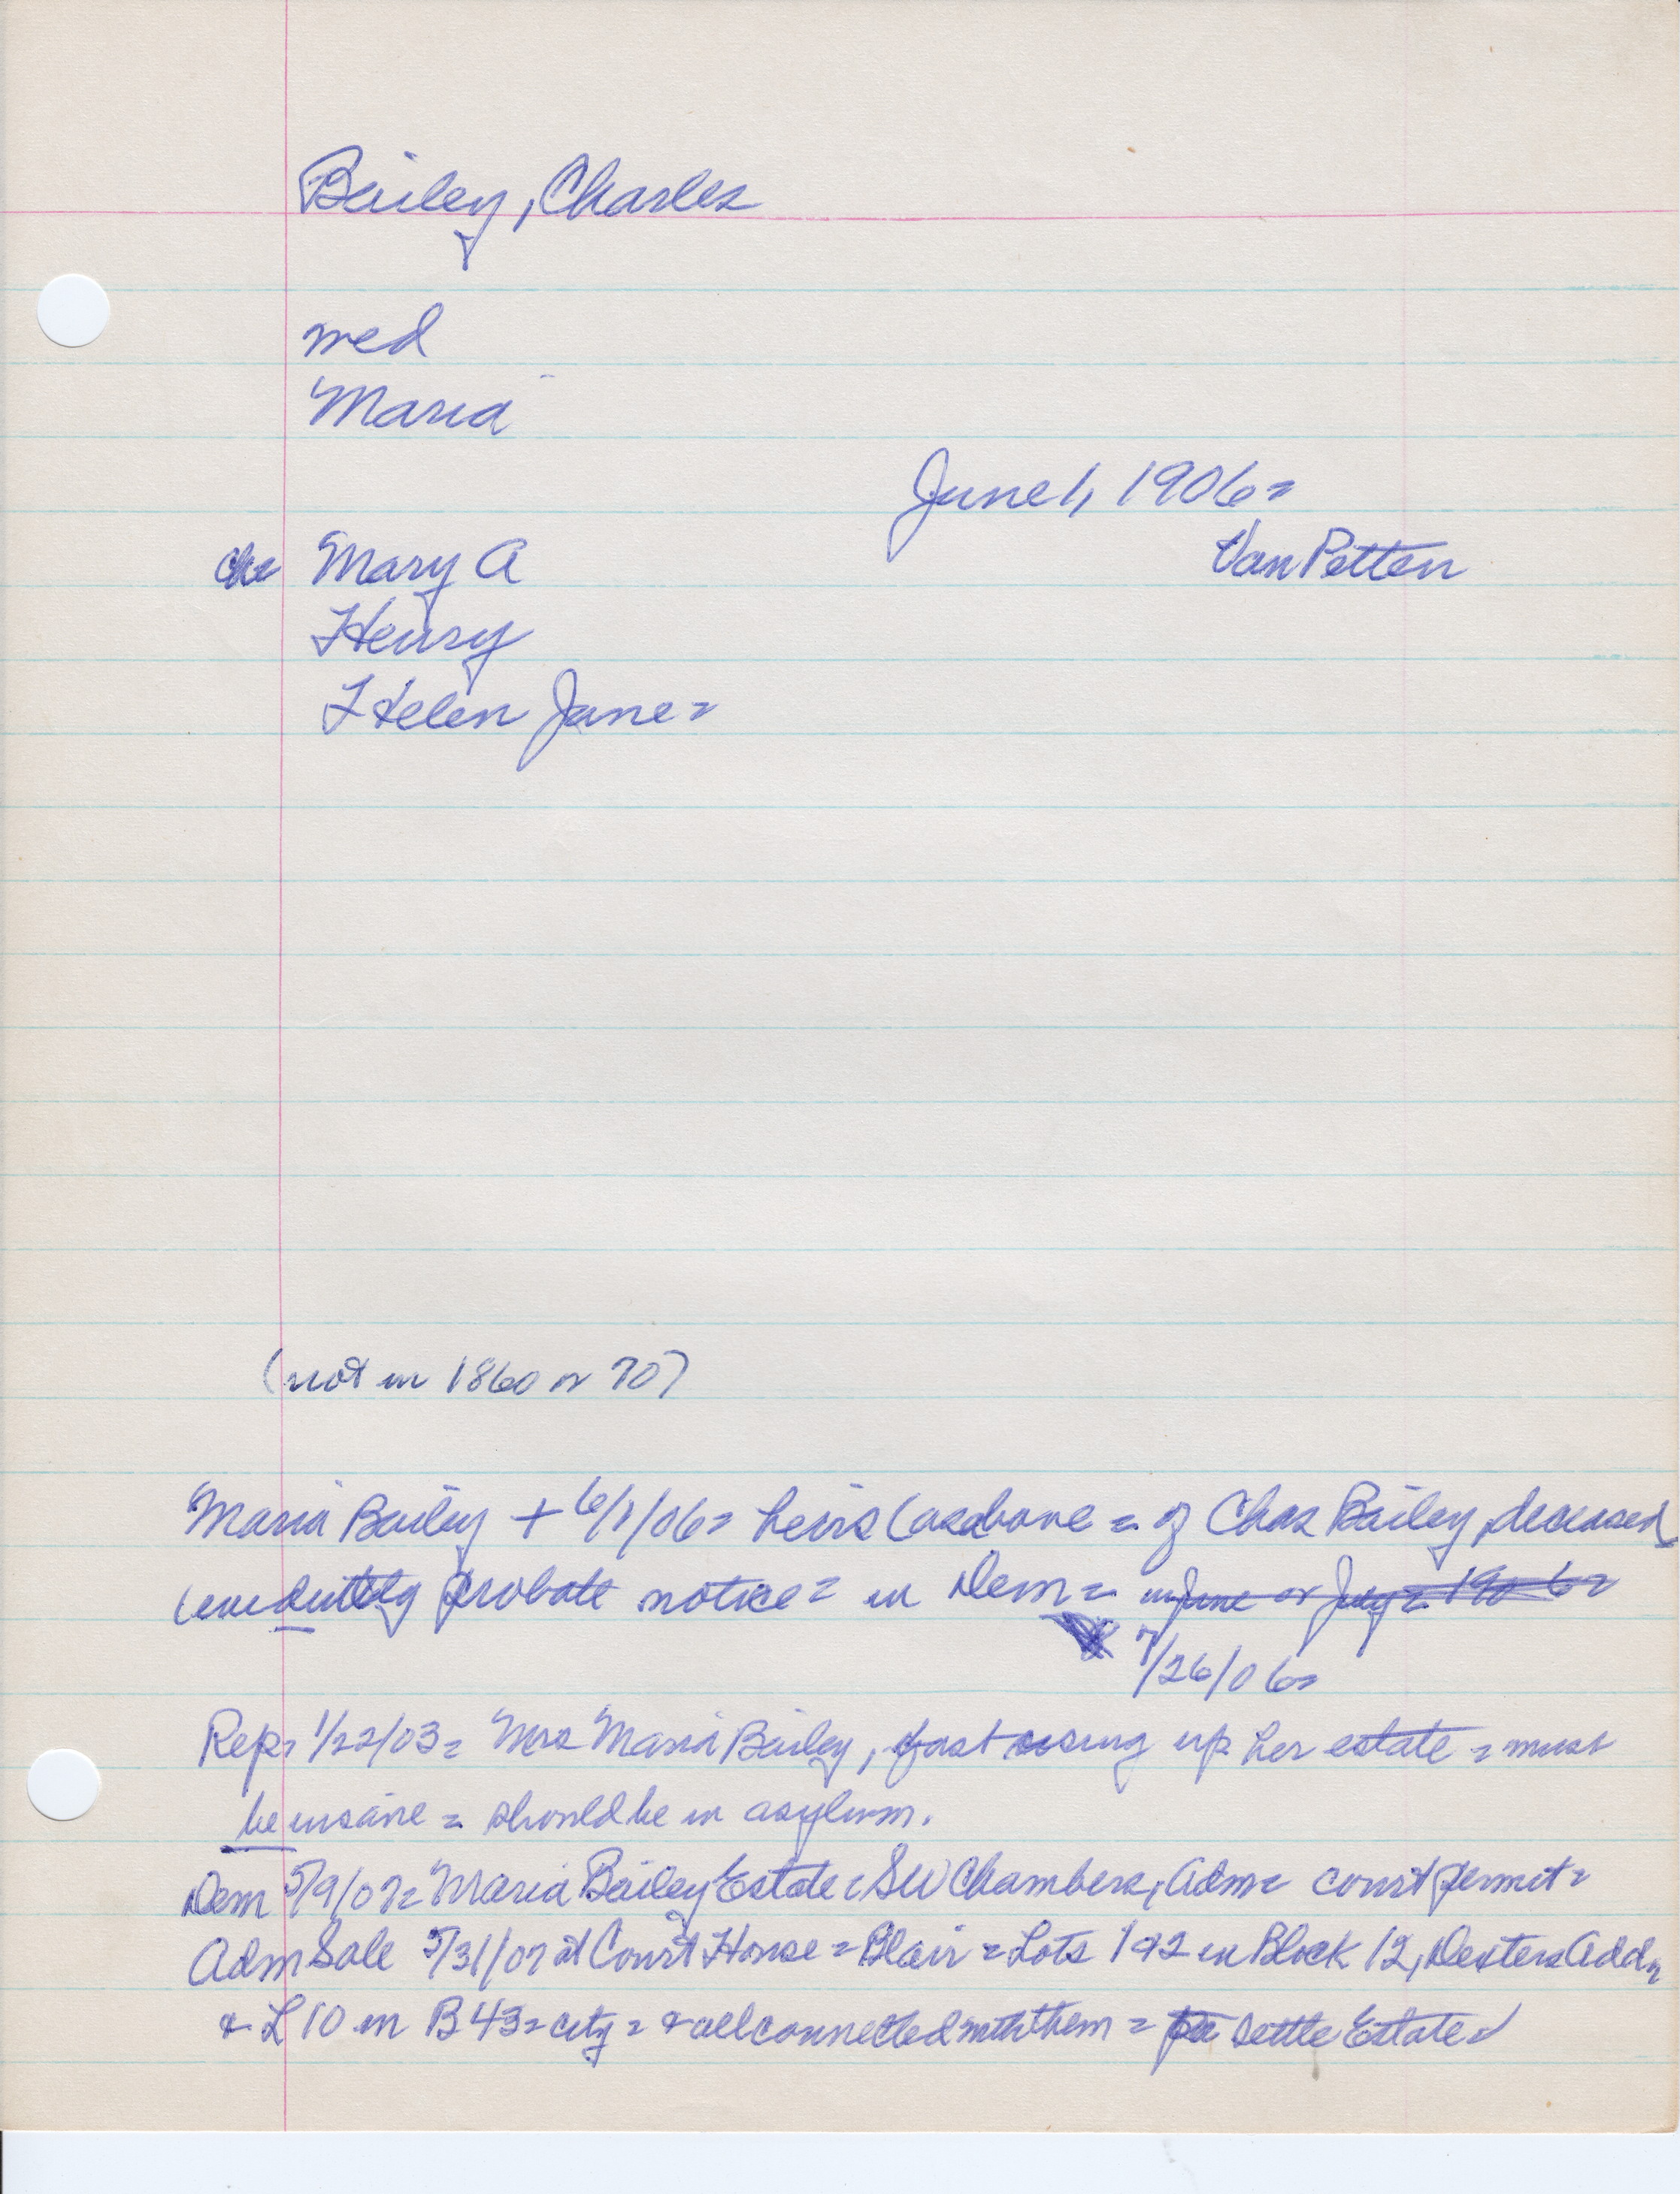 Bailey, Charles
med
Maria
June 1, 1906=
Van Petten
ch= Mary A
Henry
Helen Jane=
(not in 1860 or 70)
Maria Bailey + 6/1/06= heirs (as above = of Chas Bailey, deceased
(evidently probate notice= in Dem= in June or July= 1906=
7/26/06=
Rep= 1/22/03= Mrs Maria Bailey, fast using up her estate = must
be insane = should be in asylum.
Dem 5/9/07= Maria Bailey Estate= SW Chambers, Adm= court permit=
Adm Sale 5/31/07 at Court House = Blair = Lots 1 & 2 in Block 12, Dexters Addn
& L 10 in B 43= city = & all connected with them = settle Estate=